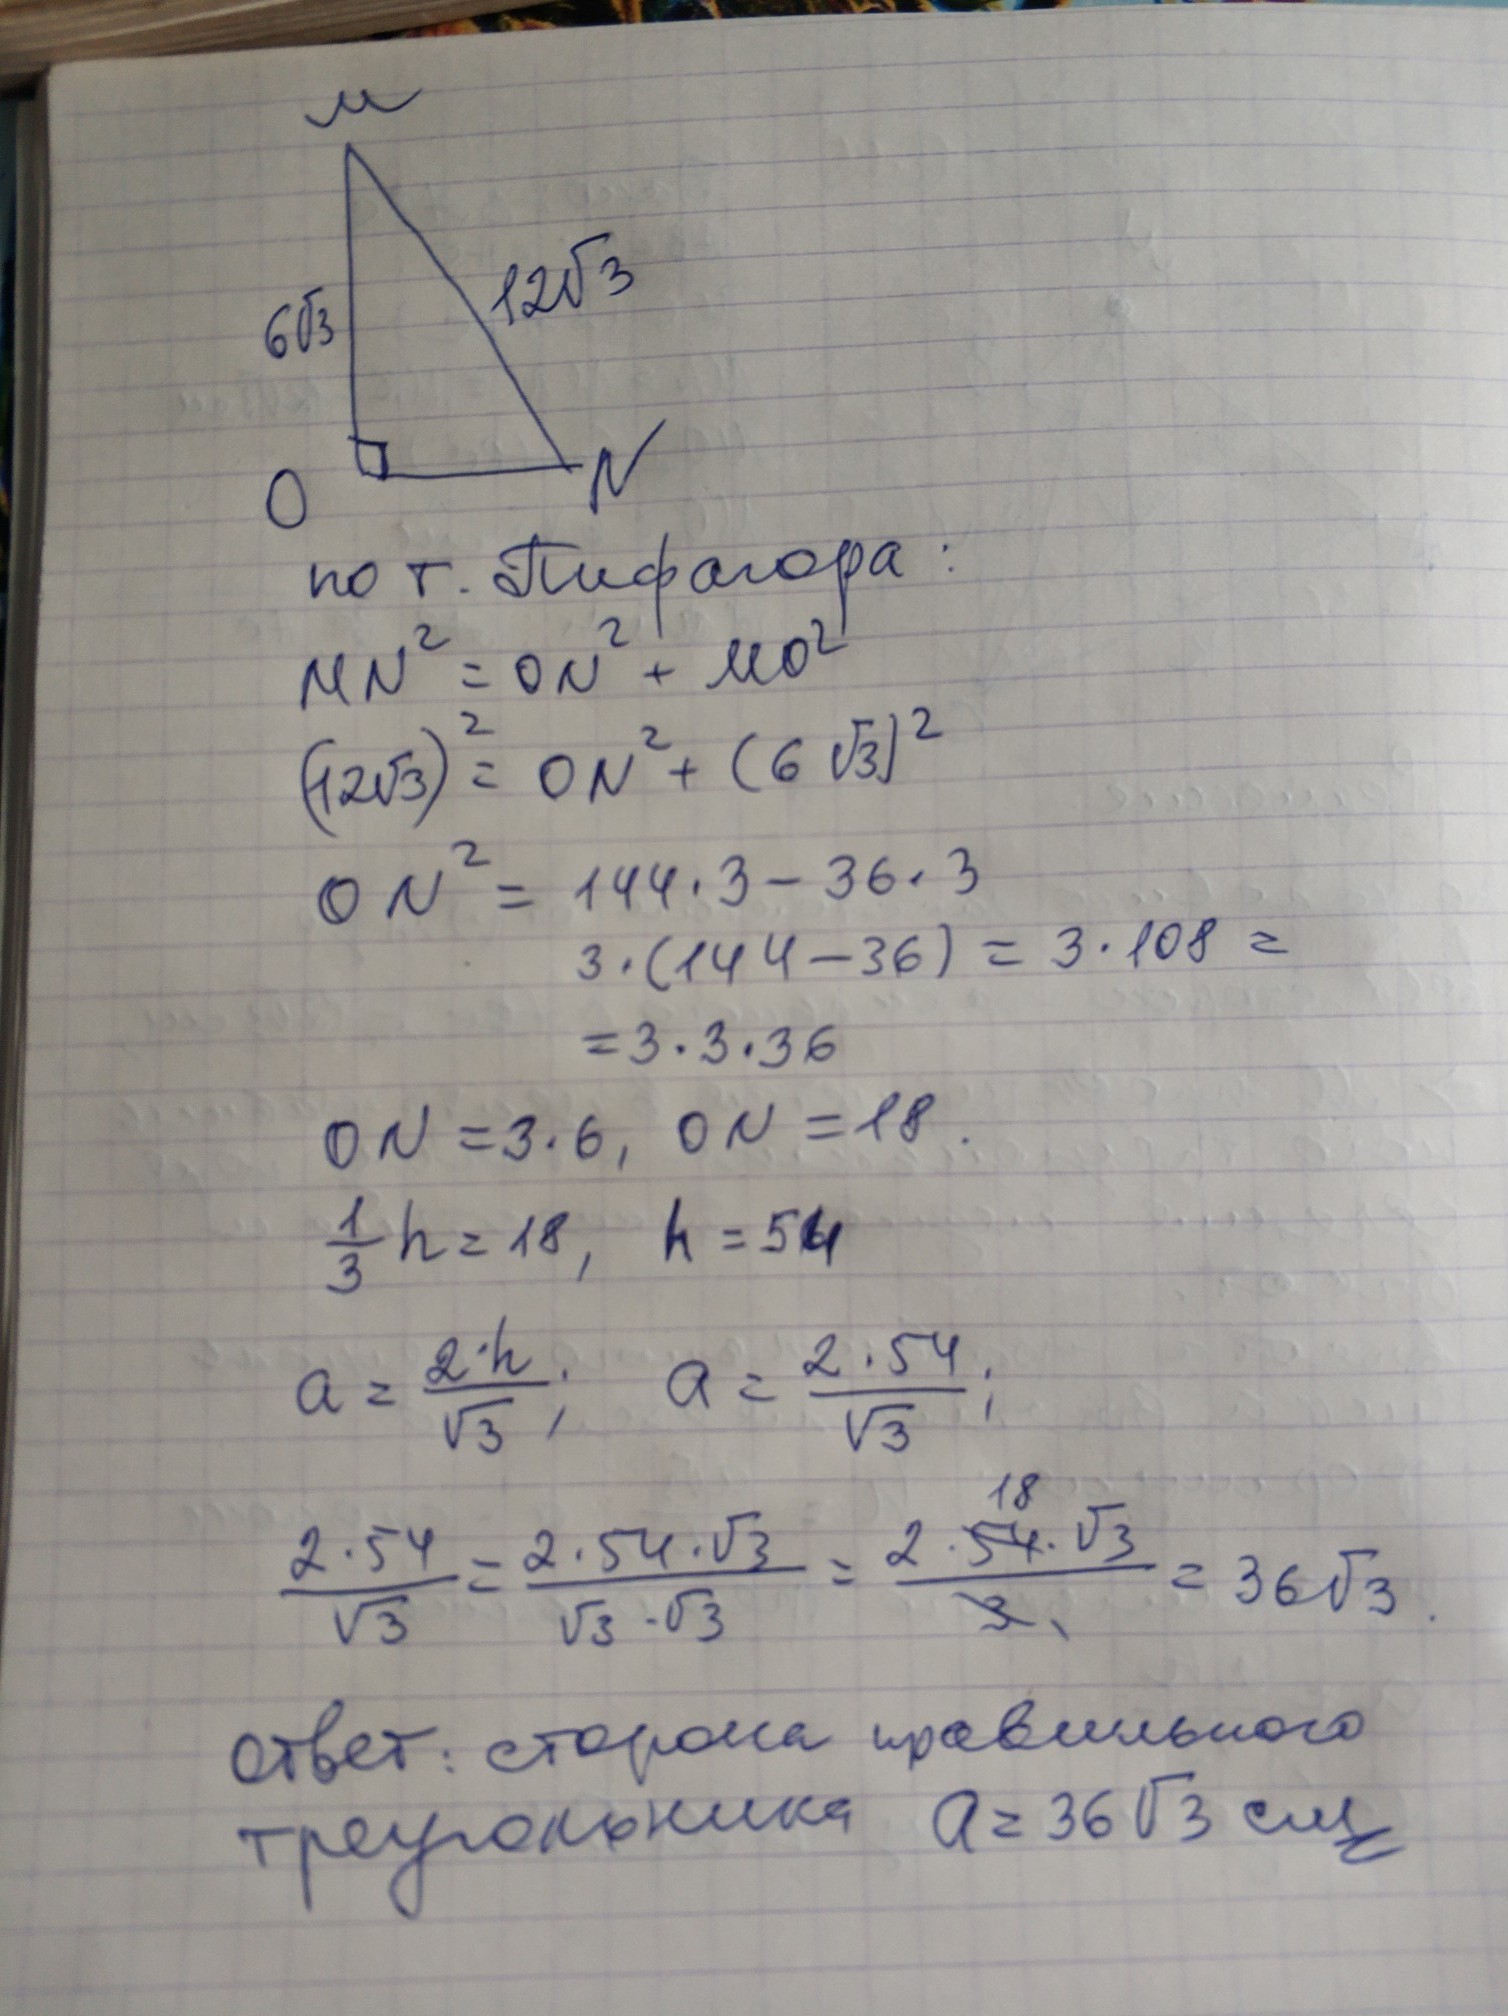 М
6√3
12√3
O
N
по т. Пифагора:
MN² = ON² + MO²
(12√3)² = ON² + (6√3)²
ON² = 144·3 - 36·3
3·(144-36) = 3·108 =
= 3·3·36
ON = 3·6, ON = 18.
1/3 h = 18, h = 54
a = 2·h/√3; a = 2·54/√3;
18
2·54/√3 = 2·54·√3/√3·√3 = 2·54·√3/3 = 36√3.
Ответ: сторона правильного
треугольника a = 36√3 см